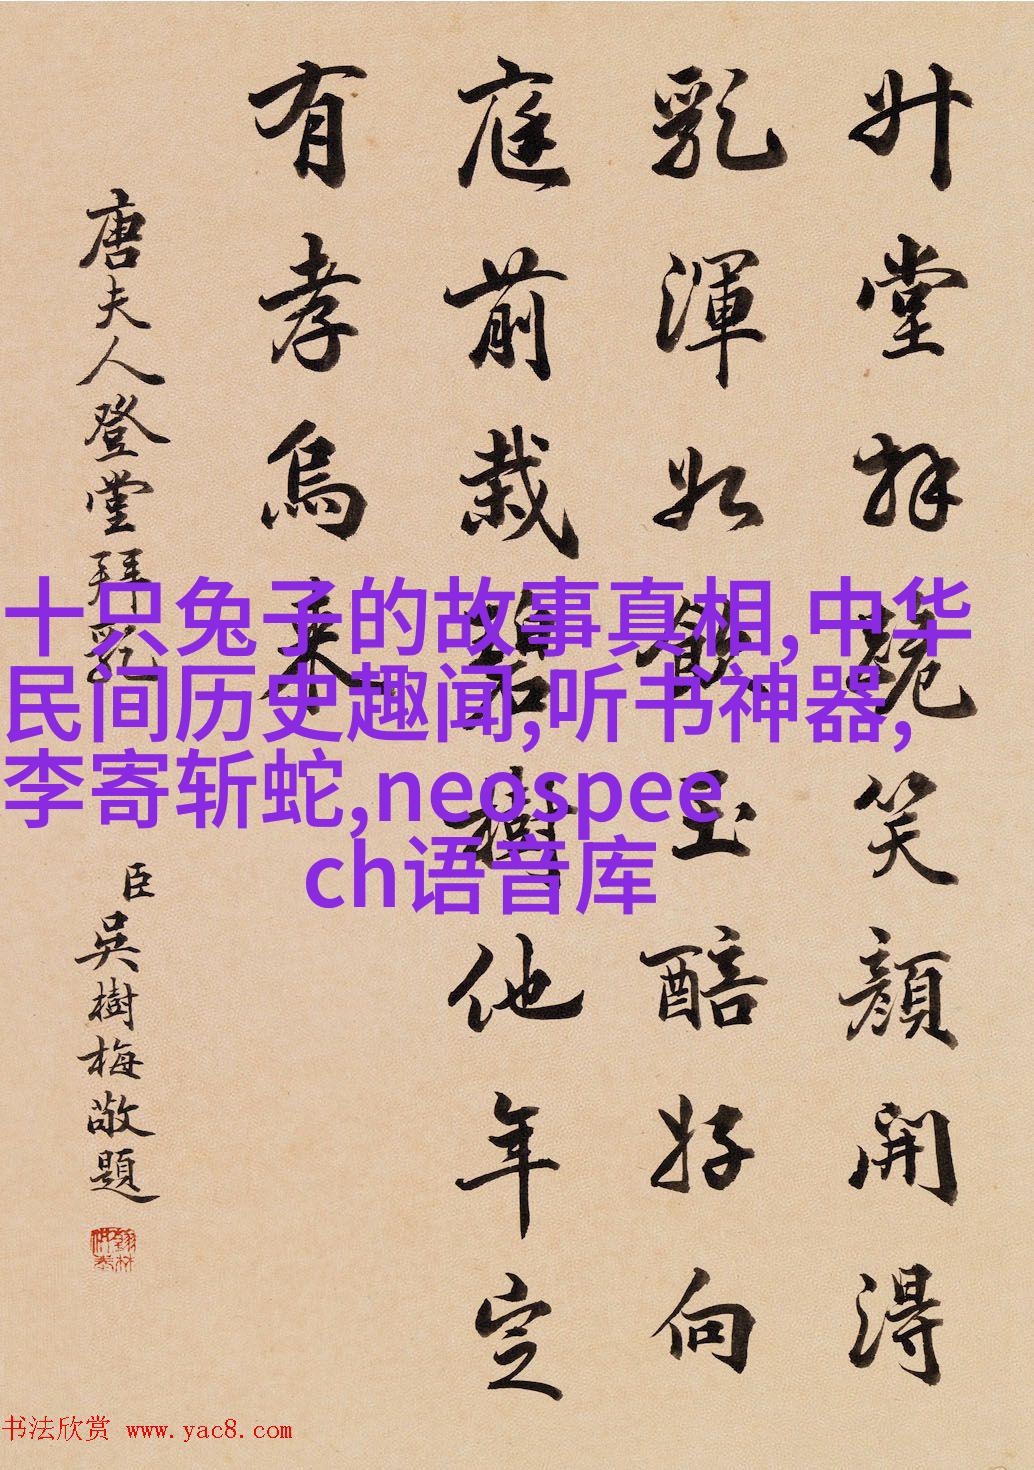 升堂拜笑顔開得
乳渾如飲玉醅好向
庭前栽碧樹他年定
有孝烏来
唐夫人登堂拜乳
臣吳樹梅敬題
十只兔子的故事真相,中华
民间历史趣闻,听书神器,
李寄斩蛇,neospee
ch语音库
书法欣赏 www.yac8.com